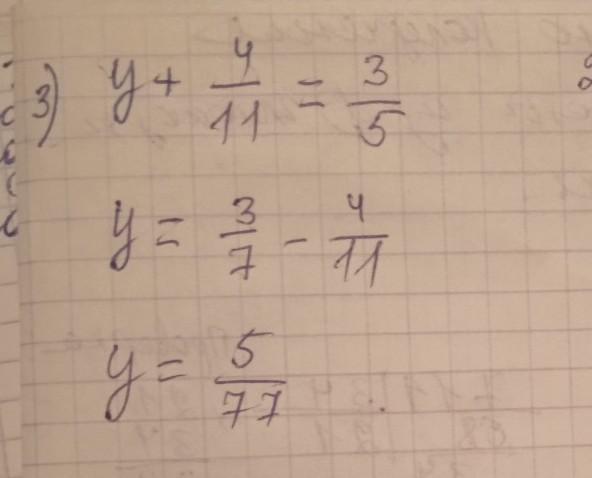 3) y + 4/11 = 3/5
y = 3/7 - 4/11
y = 5/77